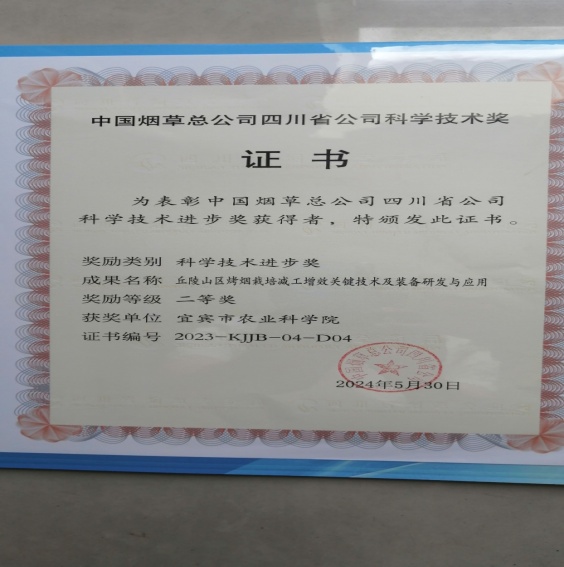 中国烟草总公司四川省公司科学技术奖
证 书
为表彰中国烟草总公司四川省公司
科学技术进步奖获得者，特颁发此证书。
奖励类别 科学技术进步奖
成果名称 丘陵山区烤烟栽培减工增效关键技术及装备研发与应用
奖励等级 二等奖
获奖单位 宜宾市农业科学院
证书编号 2023-KJJB-04-D04
中国烟草总公司四川省公司
2024年5月30日